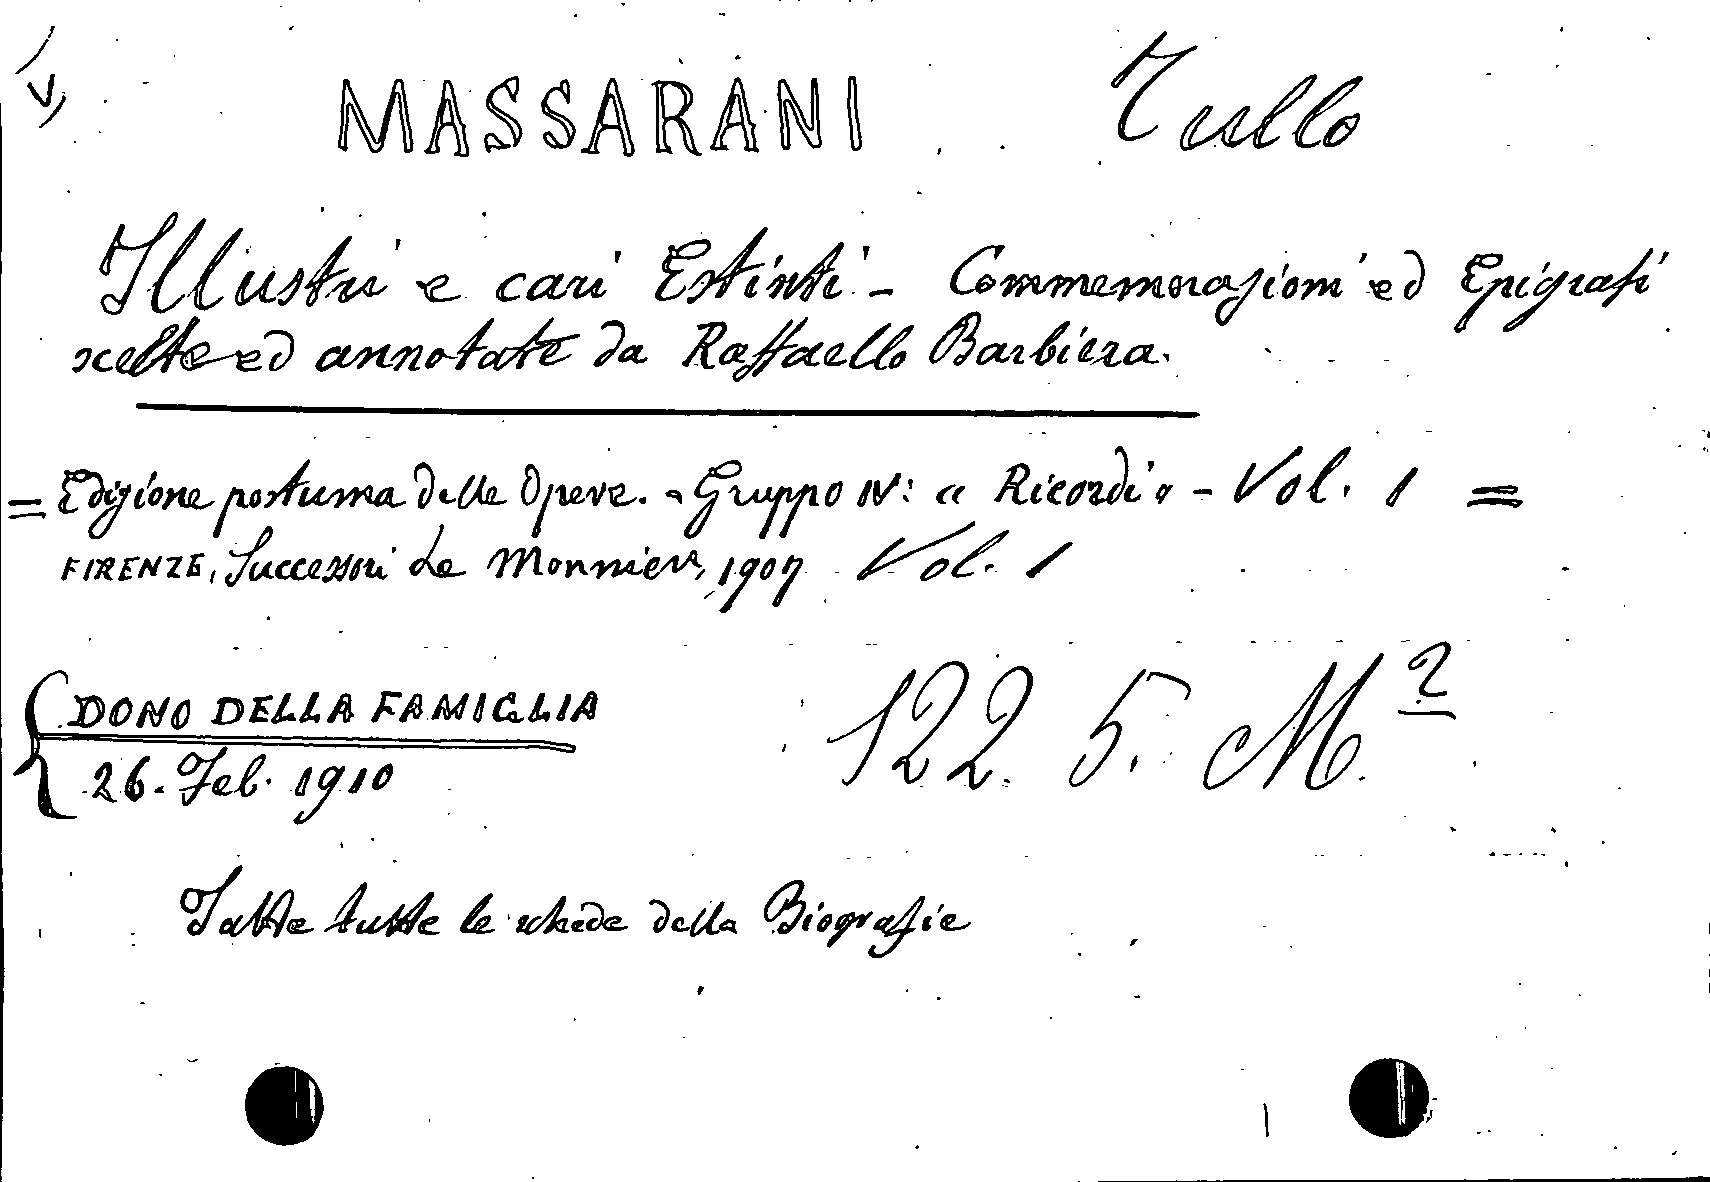 V,
MASSARANI Tullo
Illustri e cari Estinti - Commemorazioni ed Epigrafi
scelte ed annotate da Raffaello Barbiera.
= Edizione postuma delle Opere. - Gruppo IV: " Ricordi " - Vol. 1 =
FIRENZE, Successori Le Monnier, 1907 Vol. 1
DONO DELLA FAMIGLIA
26. Feb. 1910
122 5. M 2
Fatte tutte le schede della Biografie